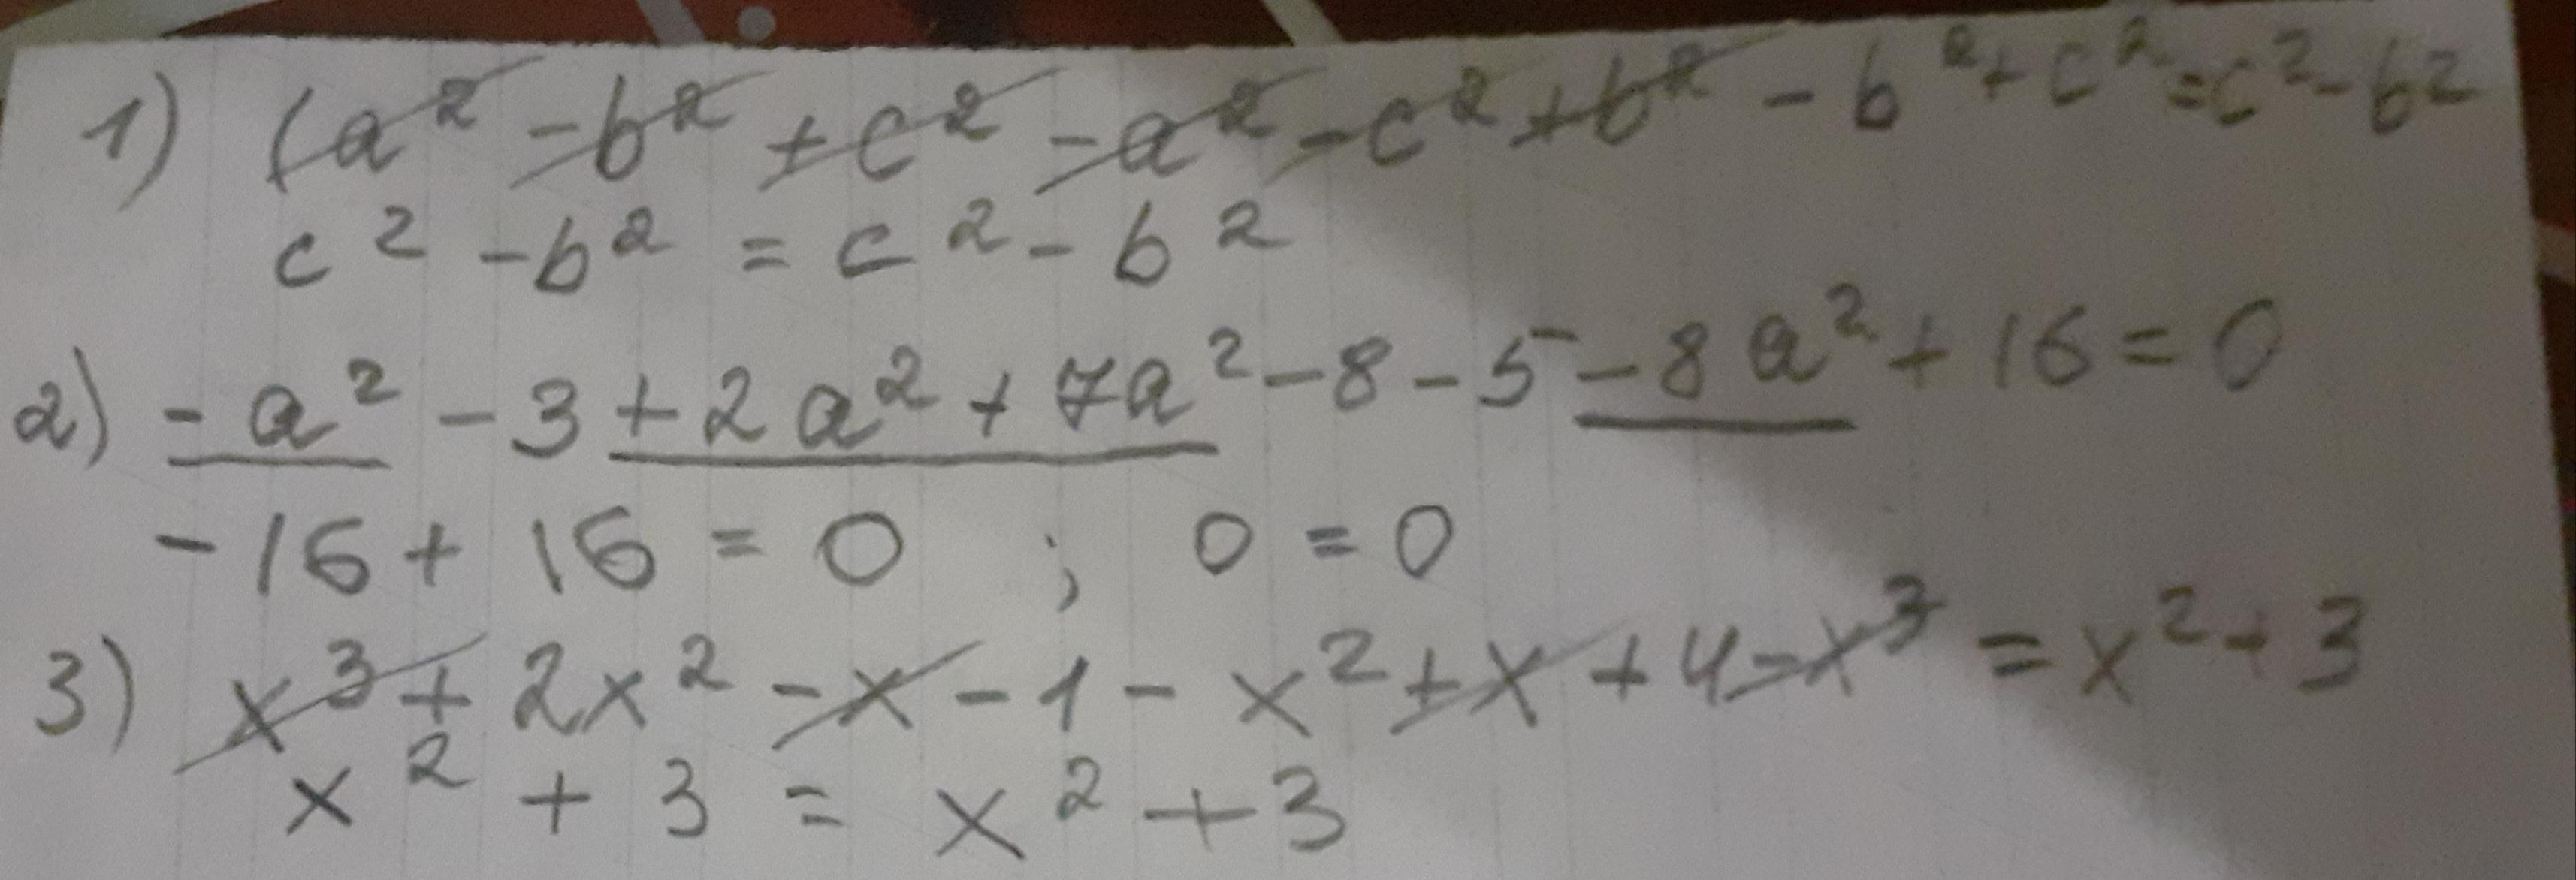 1) (a² - b² + c² - a² - c² + b² - b² + c² = c² - b²
c² - b² = c² - b²
2) - a² - 3 + 2a² + 7a² - 8 - 5 - 8a² + 16 = 0
- 16 + 16 = 0 ; 0 = 0
3) x³ + 2x² - x - 1 - x² + x + 4 - x³ = x² + 3
x² + 3 = x² + 3